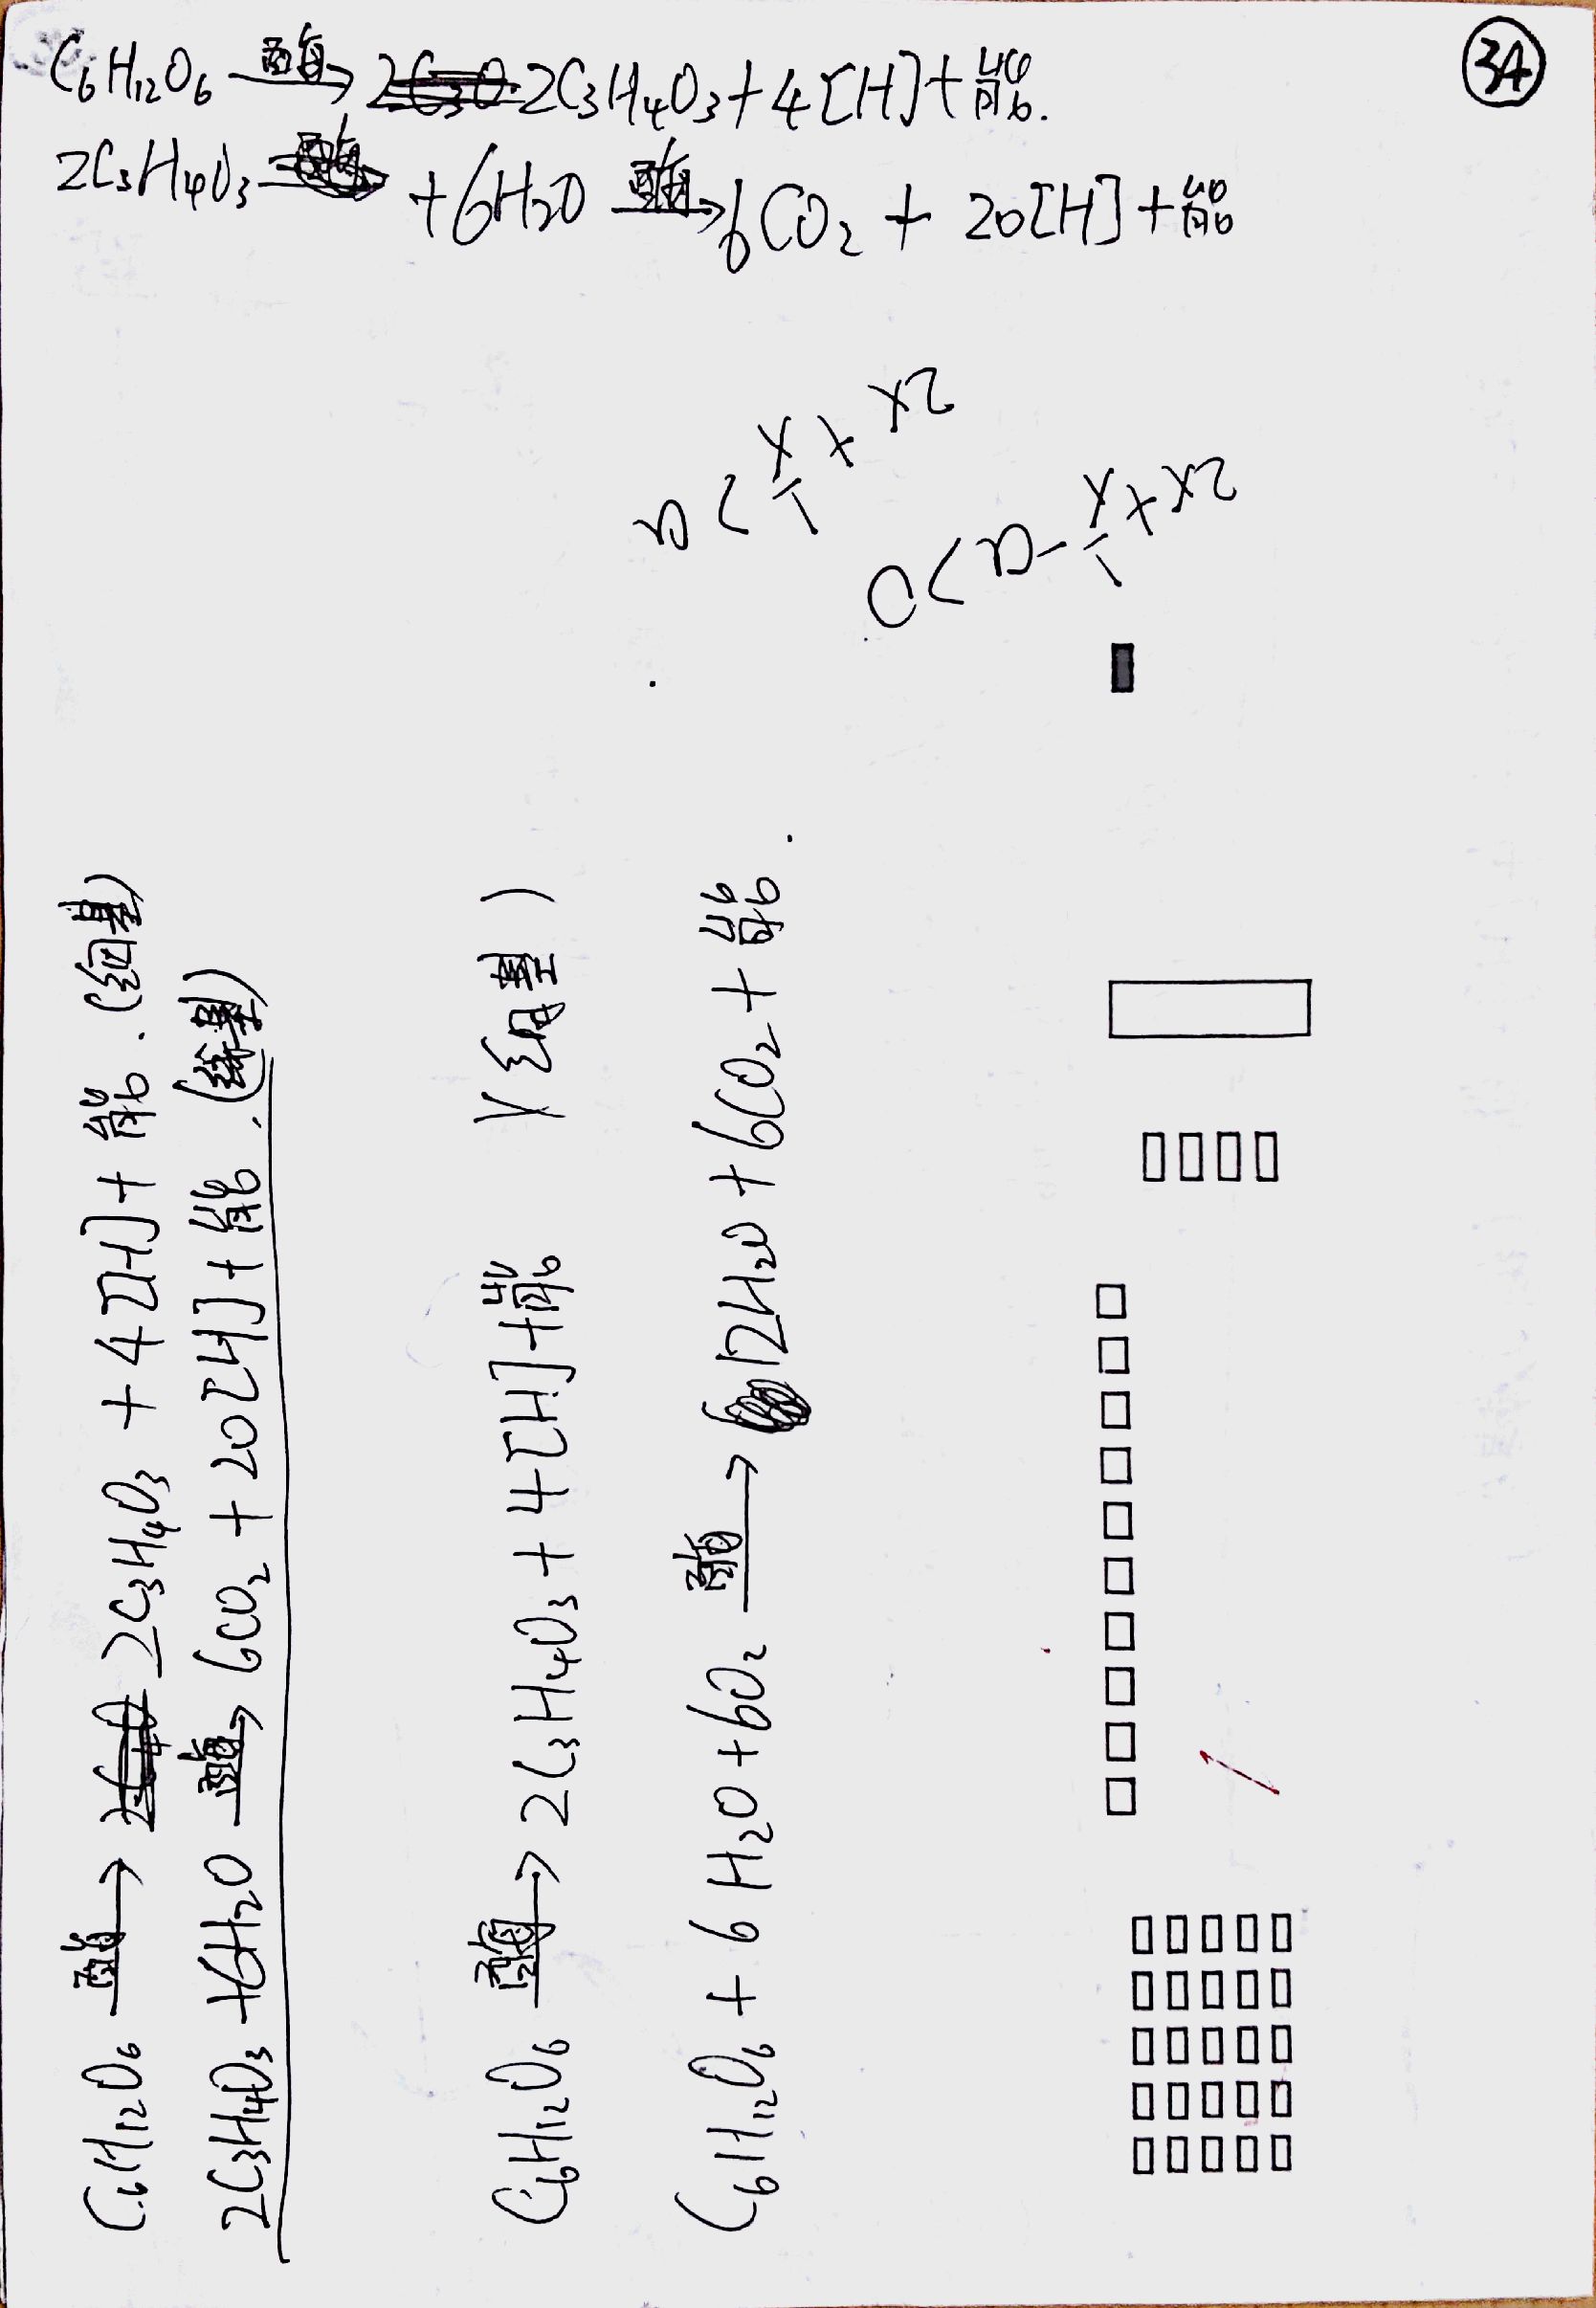 34
C₆H₁₂O₆ 酶→ 2C₃H₄O₃+4[H]+能.
2C₃H₄O₃ +6H₂O 酶→ 6CO₂ + 20[H]+能
a<
+x2
0<a-
+x2
C₆H₁₂O₆ 酶→ 2C₃H₄O₃ +4[H]+能.(细基)
2C₃H₄O₃+6H₂O 酶→ 6CO₂+20[H]+能.(线基)
C₆H₁₂O₆ 酶→ 2C₃H₄O₃+4[H]+能 (细基)
C₆H₁₂O₆+6H₂O+6O₂ 酶→ 12H₂O+6CO₂+能.